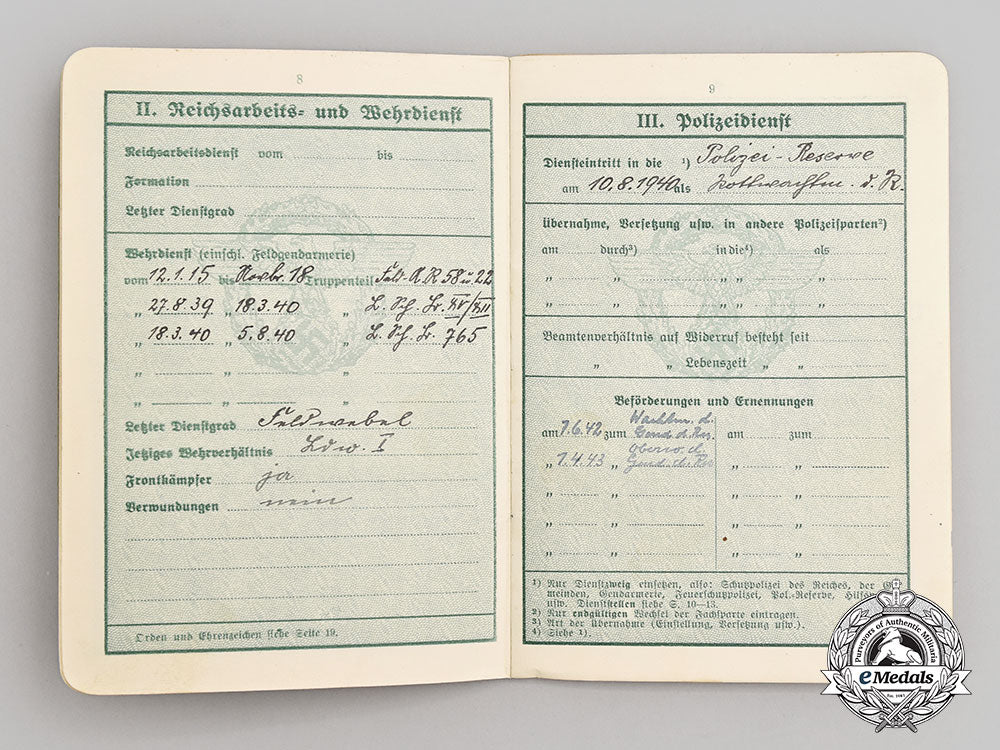 8
II. Reichsarbeits- und Wehrdienst
Reichsarbeitsdienst vom bis
Formation
Letzter Dienstgrad
Wehrdienst (einschl. Feldgendarmerie)
vom 12.1.15 bis Novbr. 18 Truppenteil Feld-A.R 58 u. 22
„ 27.8.39 „ 18.3.40 „ L. Sch. Br. XV/XII
„ 18.3.40 „ 5.8.40 „ L. Sch. Br. 765
„ „ „
„ „ „
Letzter Dienstgrad Feldwebel
Jetziges Wehrverhältnis Ldw. I
Frontkämpfer ja
Verwundungen nein
Orden und Ehrenzeichen siehe Seite 19.
9
III. Polizeidienst
Diensteintritt in die ¹) Polizei-Reserve
am 10.8.1940 als d. R.
Übernahme, Versetzung usw. in andere Polizeisparten²)
am durch³) in die⁴) als
„ „ „ „ „
„ „ „ „ „
Beamtenverhältnis auf Widerruf besteht seit
„ „ Lebenszeit „ „
Beförderungen und Ernennungen
am 7.6.42 zum Wachtm. d. Gend. d. Res. am zum
„ 1.4.43 „ Oberw. d. Gend. d. Res „ „
„ „ „ „
„ „ „ „
„ „ „ „
¹) Nur Dienstzweig einsetzen, also: Schutzpolizei des Reiches, der Ge-
meinden, Gendarmerie, Feuerschutzpolizei, Pol.-Reserve,
usw. Dienststellen siehe S. 10—13.
²) Nur endgültigen Wechsel der Fachsparte eintragen.
³) Art der Übernahme (Einstellung, Versetzung usw.).
⁴) Siehe ¹).
Purveyors of Authentic Militaria
eMedals